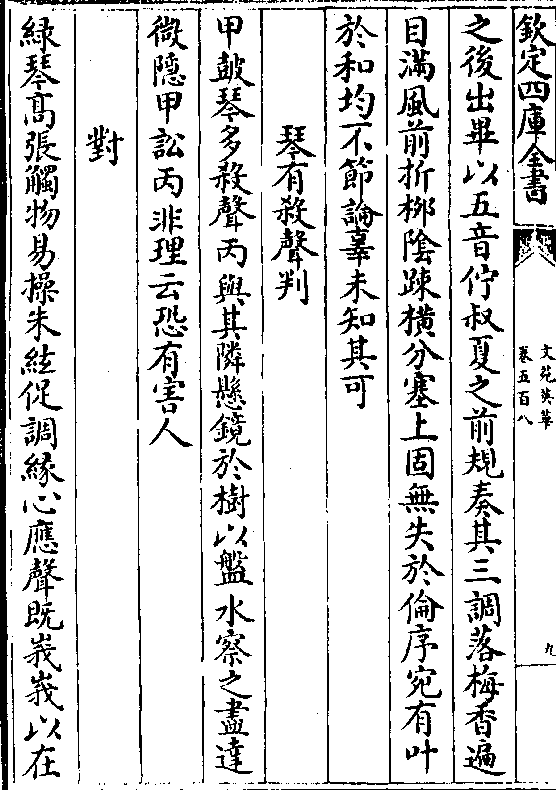 欽定四庫全書
文苑英華
卷五百八
九
之後出畢以五音佇叔夏之前規奏其三調落梅香遍
目滿風前折桞陰踈橫分塞上固無失於倫序宛有叶
於和均不節論辜未知其可
琴有殺聲判
甲鼓琴多殺聲丙與其隣懸鏡於樹以盤水察之盡達
微隠甲訟丙非理云恐有害人
對
緑琴髙張觸物易操朱絃促調縁心應聲既峩峩以在